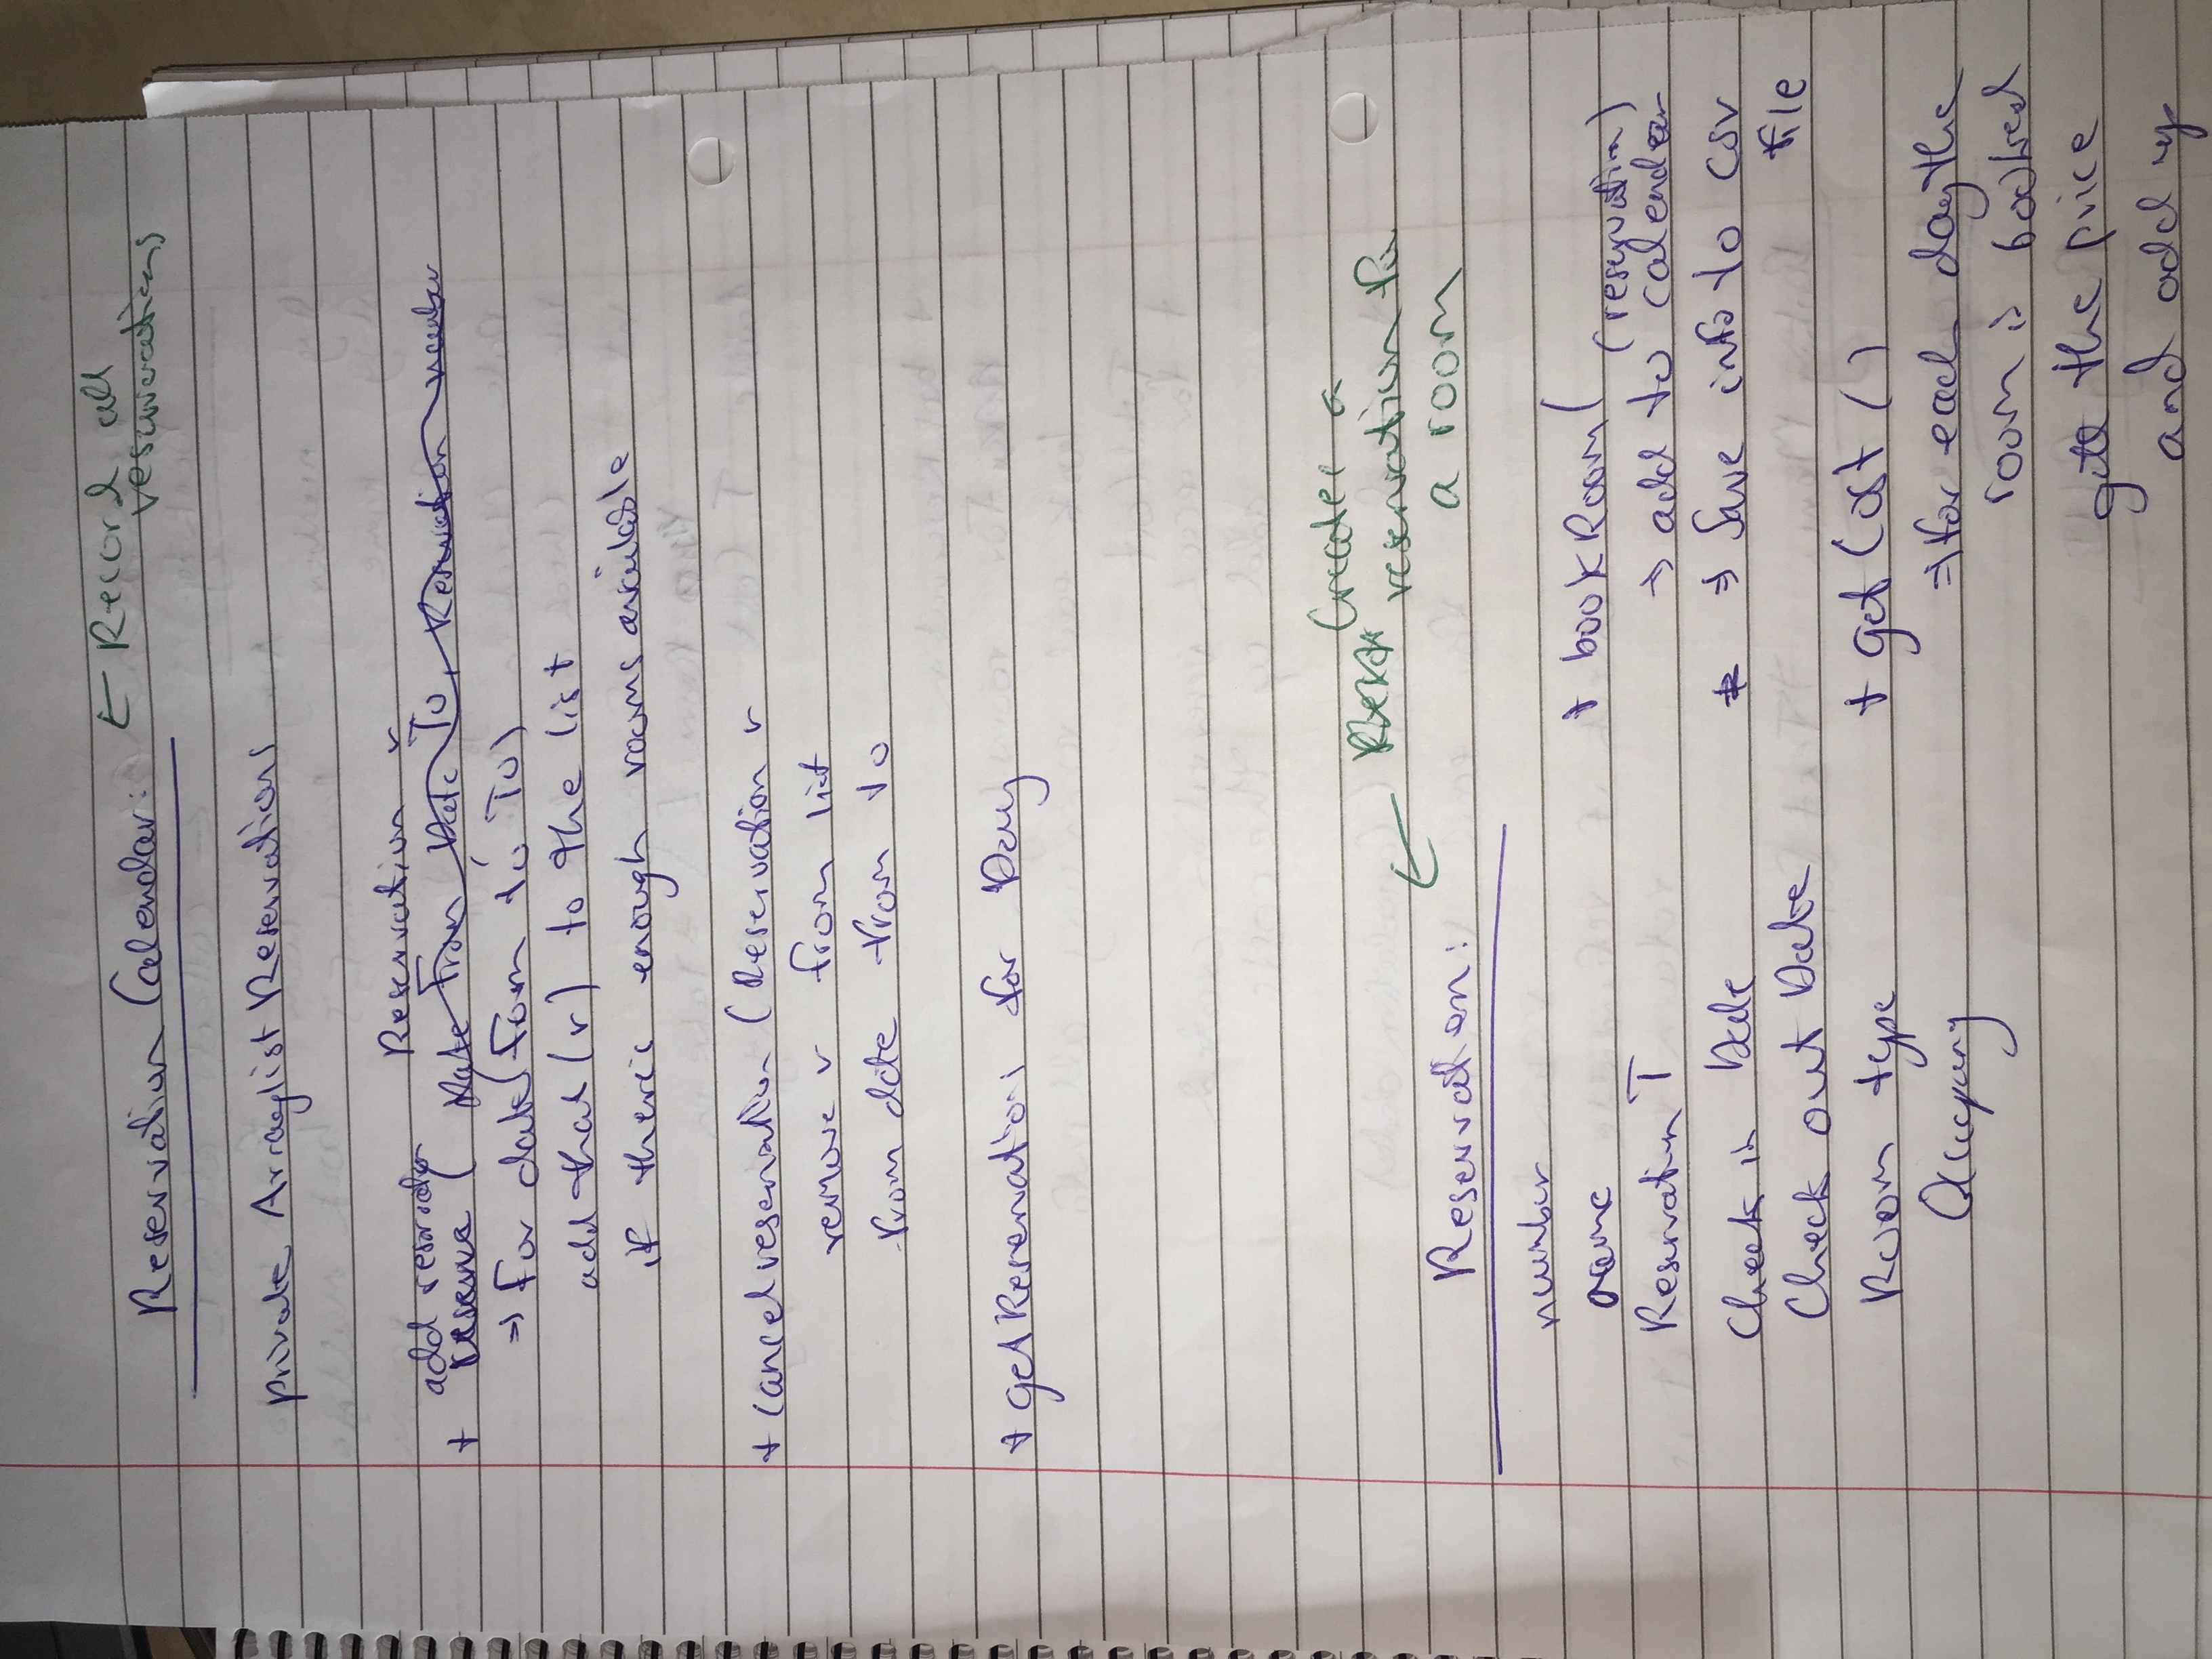 Reservation Calendar:
← Record all
reservations
private Arraylist Reservations
Reservation r
add reservation
+ reserve ( Date From Date To, Reservation number
⇒ For date (Form to To)
add that (r) to the list
if there's enough rooms available
+ cancelreservation (Reservation r
remove r from list
from date from to
+ getReservations for Day
Creates a
← reservation for
a room
Reservation:
number
name
Reservation T
Check in Date
Check out Date
Room type
Occupany
+ bookRoom(
(reservation)
⇒ add to calendar
⇒ Save info to csv
file
+ getCost ()
⇒ for each day the
room is booked
get the price
and add up